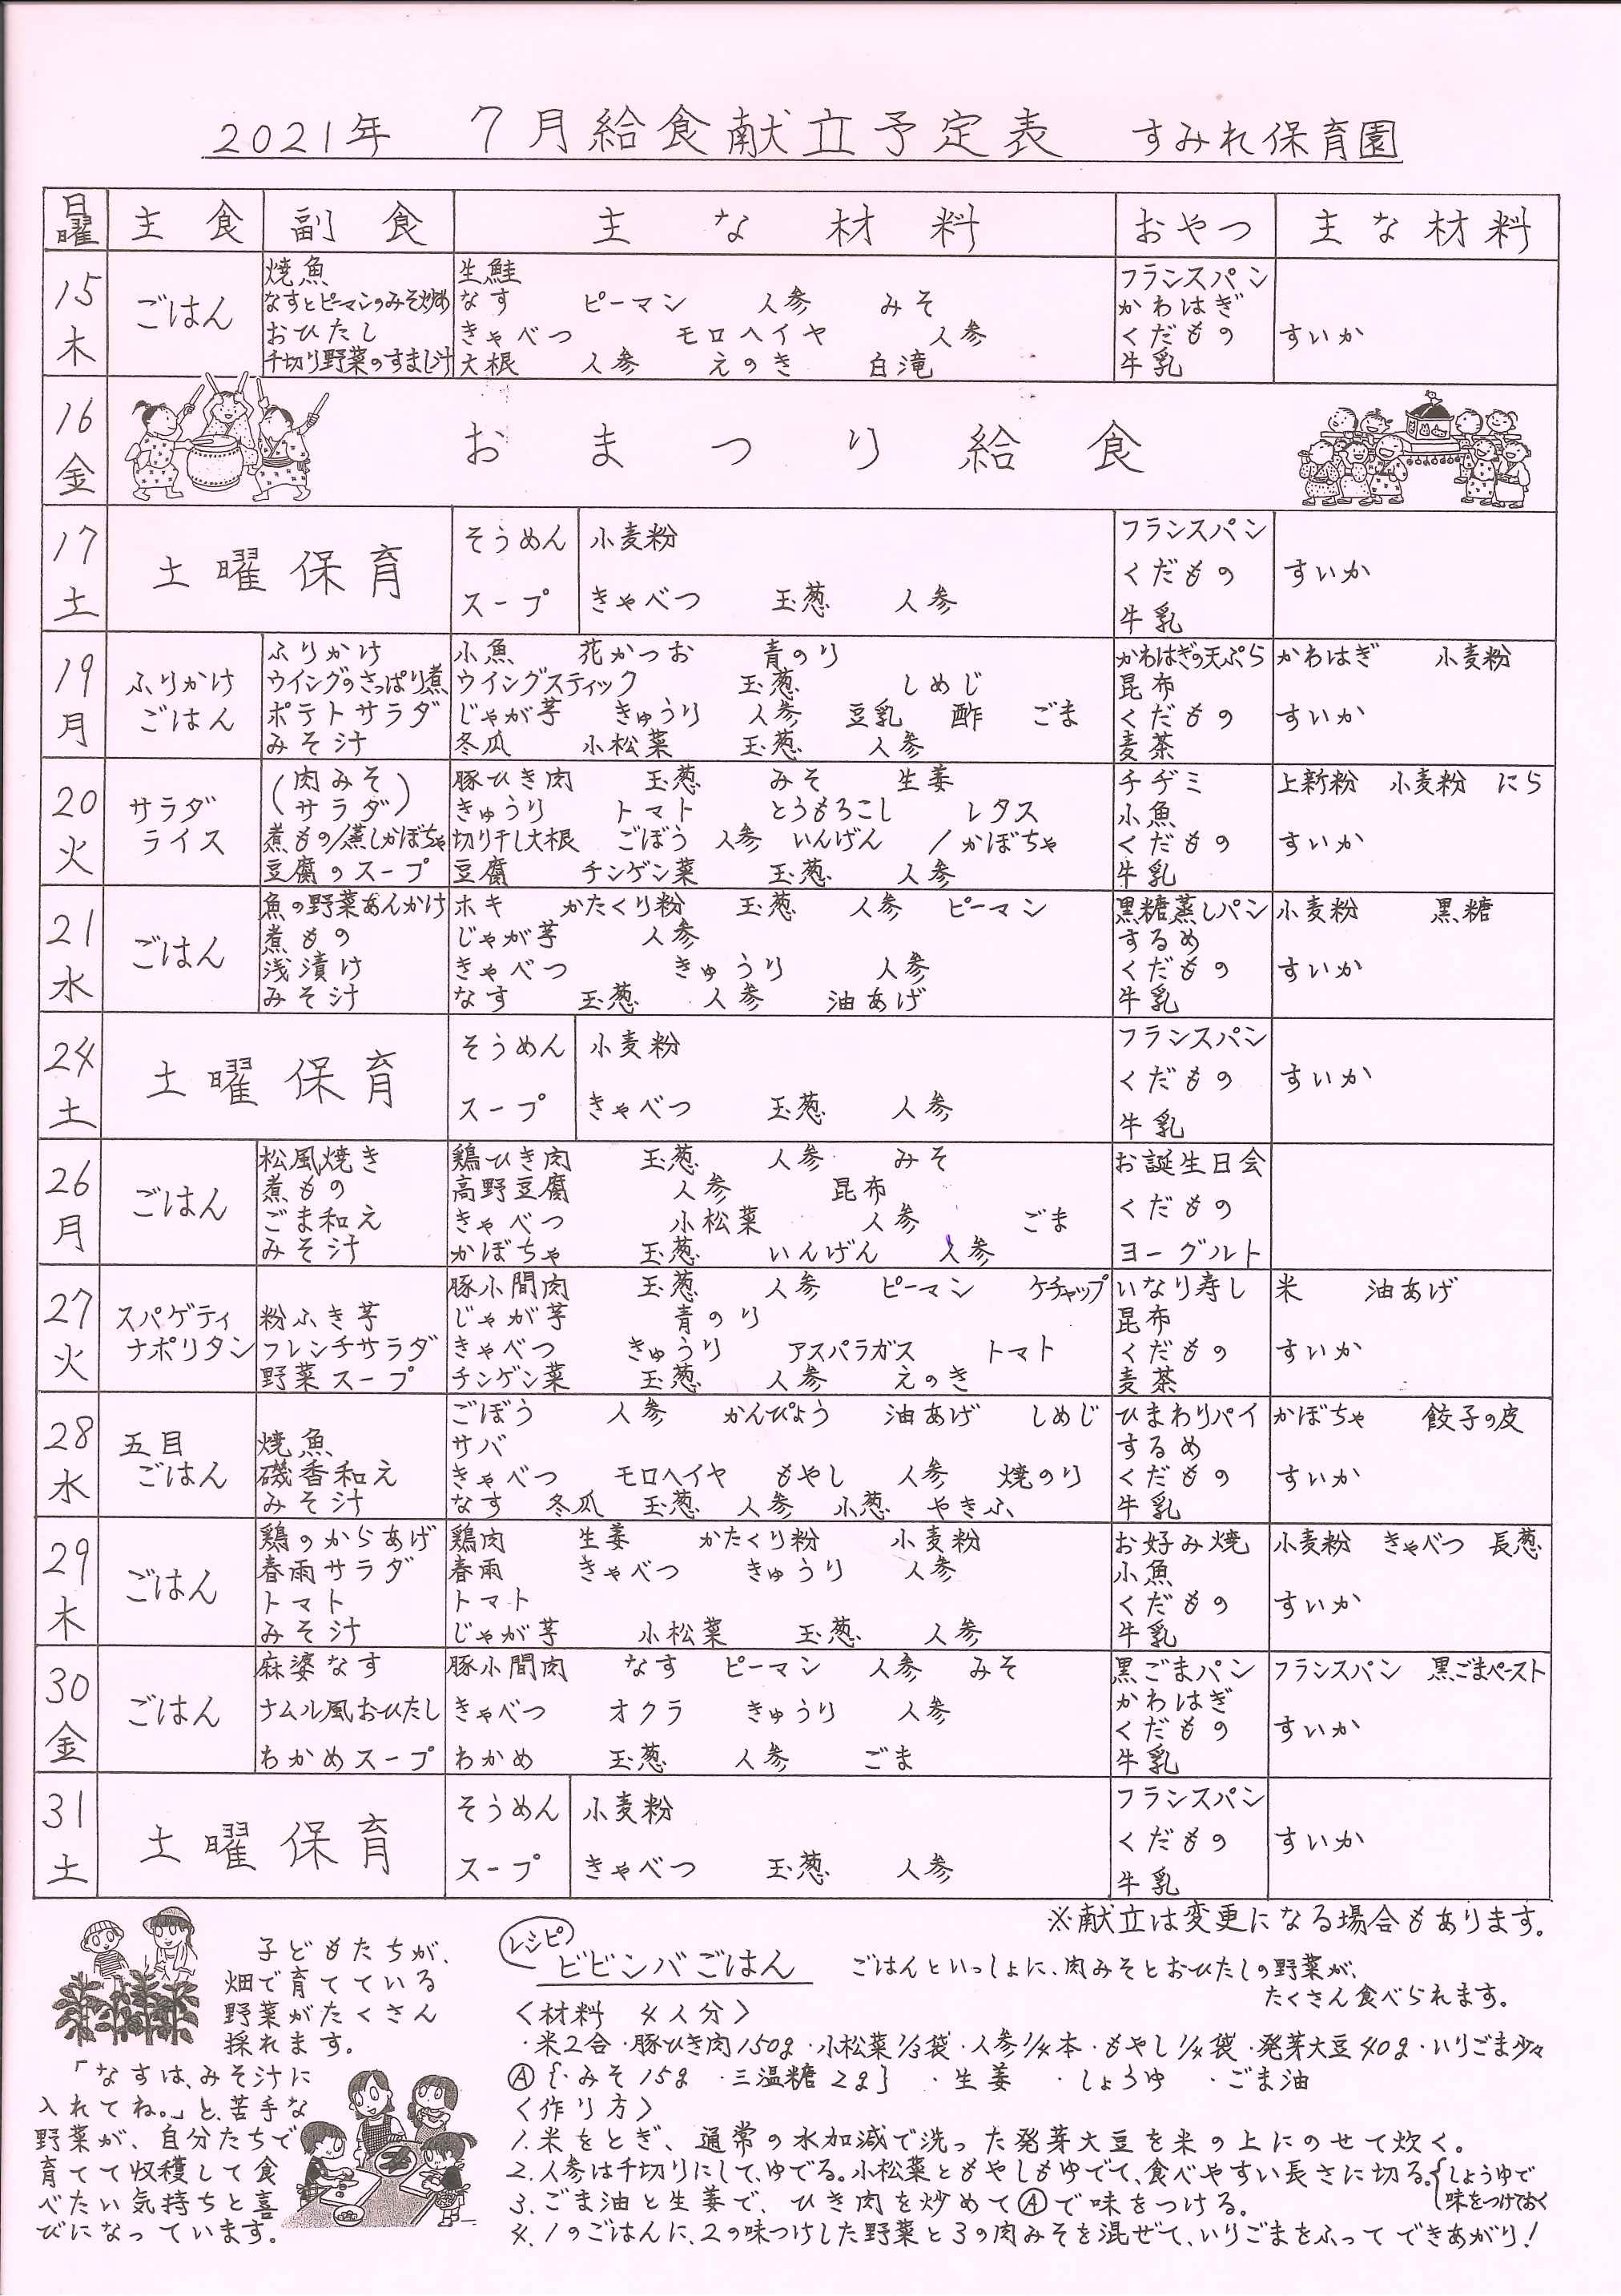 2021年 7月給食献立予定表 すみれ保育園
日曜 主食 副食 主な材料 おやつ 主な材料
15 木
ごはん
焼魚 生鮭 フランスパン
なすとピーマンのみそ炒め なす ピーマン 人参 みそ かわはぎ
おひたし きゃべつ モロヘイヤ 人参 くだもの すいか
千切り野菜のすまし汁 大根 人参 えのき 白滝 牛乳
16 金
おまつり給食
17 土
土曜保育
そうめん 小麦粉 フランスパン
くだもの すいか
スープ きゃべつ 玉葱 人参 牛乳
19 月
ふりかけ
ごはん
ふりかけ 小魚 花かつお 青のり かわはぎの天ぷら かわはぎ 小麦粉
ウイングのさっぱり煮 ウイングスティック 玉葱 しめじ 昆布
ポテトサラダ じゃが芋 きゅうり 人参 豆乳 酢 ごま くだもの すいか
みそ汁 冬瓜 小松菜 玉葱 人参 麦茶
20 火
サラダ
ライス
(肉みそ 豚ひき肉 玉葱 みそ 生姜 チヂミ 上新粉 小麦粉 にら
サラダ) きゅうり トマト とうもろこし レタス 小魚
煮もの/蒸しかぼちゃ 切り干し大根 ごぼう 人参 いんげん /かぼちゃ くだもの すいか
豆腐のスープ 豆腐 チンゲン菜 玉葱 人参 牛乳
21 水
ごはん
魚の野菜あんかけ ホキ かたくり粉 玉葱 人参 ピーマン 黒糖蒸しパン 小麦粉 黒糖
煮もの じゃが芋 人参 するめ
浅漬け きゃべつ きゅうり 人参 くだもの すいか
みそ汁 なす 玉葱 人参 油あげ 牛乳
24 土
土曜保育
そうめん 小麦粉 フランスパン
くだもの すいか
スープ きゃべつ 玉葱 人参 牛乳
26 月
ごはん
松風焼き 鶏ひき肉 玉葱 人参 みそ お誕生日会
煮もの 高野豆腐 人参 昆布
ごま和え きゃべつ 小松菜 人参 ごま くだもの
みそ汁 かぼちゃ 玉葱 いんげん 人参 ヨーグルト
27 火
スパゲティ
ナポリタン
豚小間肉 玉葱 人参 ピーマン ケチャップ いなり寿し 米 油あげ
粉ふき芋 じゃが芋 青のり 昆布
フレンチサラダ きゃべつ きゅうり アスパラガス トマト くだもの すいか
野菜スープ チンゲン菜 玉葱 人参 えのき 麦茶
28 水
五目
ごはん
ごぼう 人参 かんぴょう 油あげ しめじ ひまわりパイ かぼちゃ 餃子の皮
焼魚 サバ するめ
磯香和え きゃべつ モロヘイヤ もやし 人参 焼のり くだもの すいか
みそ汁 なす 冬瓜 玉葱 人参 小葱 やきふ 牛乳
29 木
ごはん
鶏のからあげ 鶏肉 生姜 かたくり粉 小麦粉 お好み焼 小麦粉 きゃべつ 長葱
春雨サラダ 春雨 きゃべつ きゅうり 人参 小魚
トマト トマト くだもの すいか
みそ汁 じゃが芋 小松菜 玉葱 人参 牛乳
30 金
ごはん
麻婆なす 豚小間肉 なす ピーマン 人参 みそ 黒ごまパン フランスパン 黒ごまペースト
かわはぎ
ナムル風おひたし きゃべつ オクラ きゅうり 人参 くだもの すいか
わかめスープ わかめ 玉葱 人参 ごま 牛乳
31 土
土曜保育
そうめん 小麦粉 フランスパン
くだもの すいか
スープ きゃべつ 玉葱 人参 牛乳
※献立は変更になる場合もあります。
子どもたちが、
畑で育てている
野菜がたくさん
採れます。
「なすは、みそ汁に
入れてね。」と、苦手な
野菜が、自分たちで
育てて収穫して食
べたい気持ちと喜
びになっています。
レシピ
ビビンバごはん ごはんといっしょに、肉みそとおひたしの野菜が、
たくさん食べられます。
〈材料 4人分〉
・米2合・豚ひき肉150g・小松菜1/3袋・人参1/4本・もやし1/4袋・発芽大豆40g・いりごま少々
Ⓐ{・みそ15g ・三温糖2g} ・生姜 ・しょうゆ ・ごま油
〈作り方〉
1.米をとぎ、通常の水加減で洗った発芽大豆を米の上にのせて炊く。
2.人参は千切りにして、ゆでる。小松菜ともやしもゆでて、食べやすい長さに切る。{しょうゆで
味をつけておく
3.ごま油と生姜で、ひき肉を炒めてⒶで味をつける。
4.1のごはんに、2の味つけした野菜と3の肉みそを混ぜて、いりごまをふって できあがり!